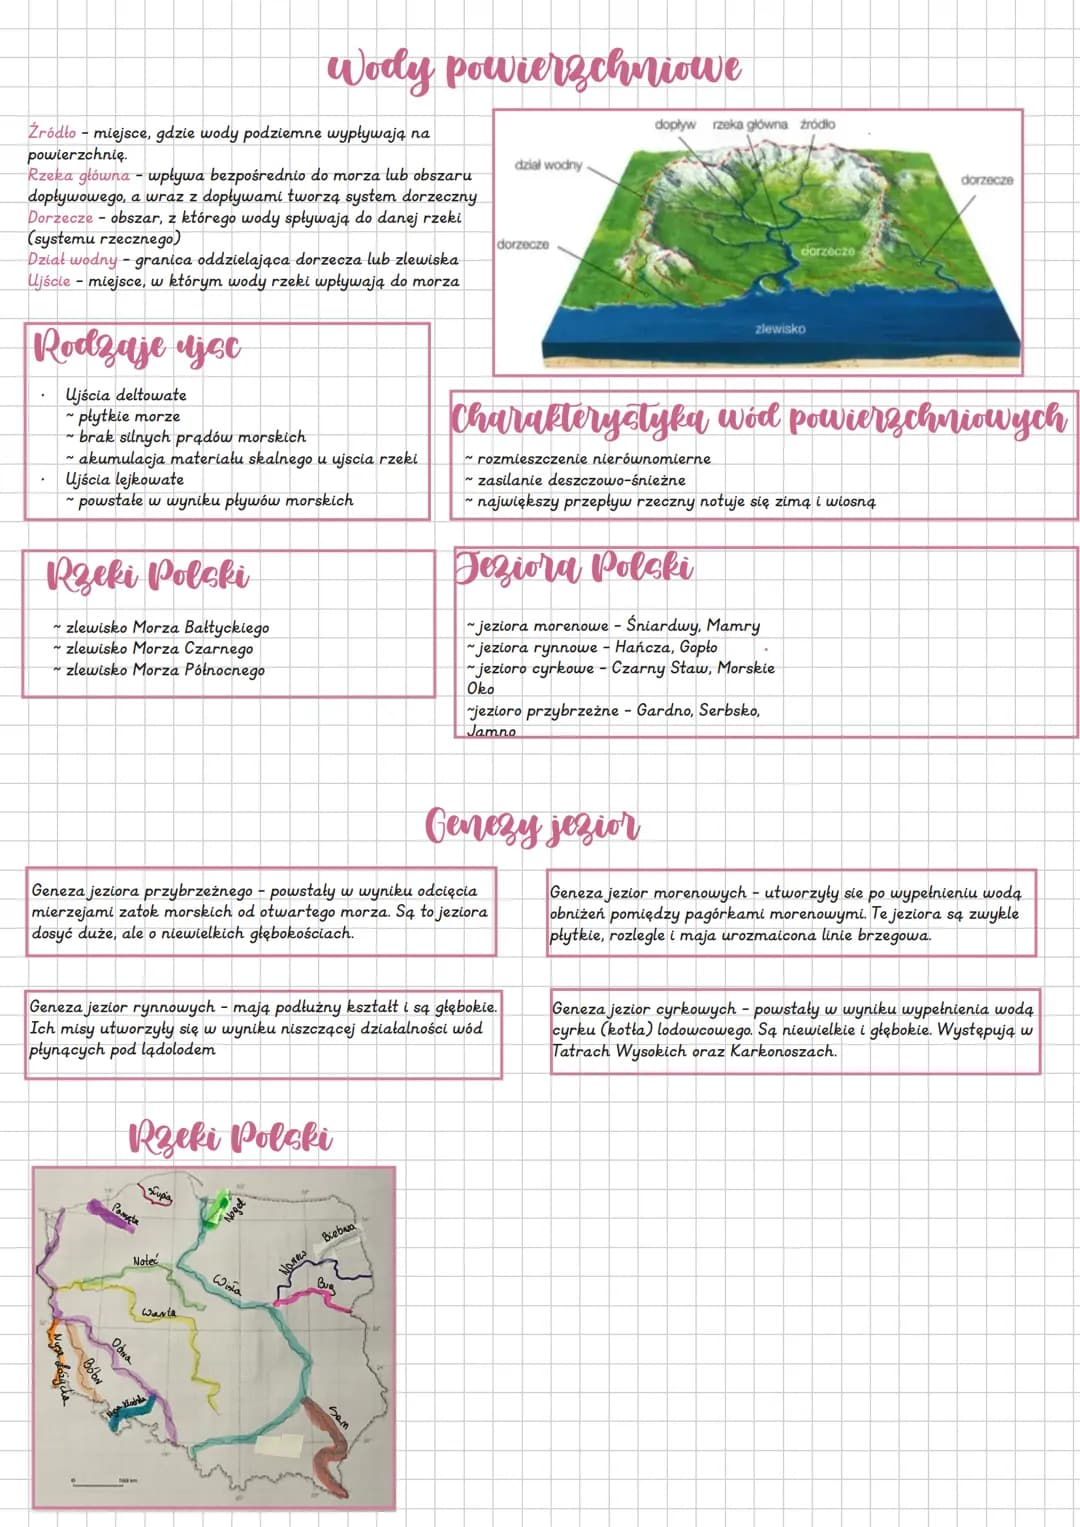 Wody powierzchniowe
Źródło - miejsce, gdzie wody podziemne wypływają na
powierzchnię.
Rzeka główna - wpływa bezpośrednio do morza lub obszaru
dopływowego, a wraz z dopływami tworzą system dorzeczny
Dorzecze - obszar, z którego wody spływają do danej rzeki
(systemu rzecznego)
Dział wodny - granica oddzielająca dorzecza lub zlewiska
Ujście - miejsce, w którym wody rzeki wpływają do morza
dopływ rzeka główna źródło
dział wodny
dorzecze
dorzecze
dorzecze
zlewisko
Rodzaje ujsc
· Ujścia deltowate
~ płytkie morze
~ brak silnych prądów morskich
~ akumulacja materiału skalnego u ujscia rzeki
· Ujścia lejkowate
~ powstałe w wyniku pływów morskich
Charakterystyka wód powierzchniowych
~ rozmieszczenie nierównomierne
~ zasilanie deszczowo-śnieżne
~ największy przepływ rzeczny notuje się zimą i wiosną
Rzeki Polski
~ zlewisko Morza Bałtyckiego
~ zlewisko Morza Czarnego
~ zlewisko Morza Północnego
Jeziora Polski
~ jeziora morenowe - Śniardwy, Mamry
~ jeziora rynnowe - Hańcza, Gopło
~ jezioro cyrkowe - Czarny Staw, Morskie
Oko
~jezioro przybrzeżne - Gardno, Serbsko,
Jamno
Genezy jezior
Geneza jeziora przybrzeżnego - powstały w wyniku odcięcia
mierzejami zatok morskich od otwartego morza. Są to jeziora
dosyć duże, ale o niewielkich głębokościach.
Geneza jezior morenowych - utworzyły sie po wypełnieniu wodą
obniżeń pomiędzy pagórkami morenowymi. Te jeziora są zwykle
płytkie, rozlegle i maja urozmaicona linie brzegowa.
Geneza jezior rynnowych - mają podłużny kształt i są głębokie.
Ich misy utworzyły się w wyniku niszczącej działalności wód
płynących pod lądolodem
Geneza jezior cyrkowych - powstały w wyniku wypełnienia wodą
cyrku (kotła) lodowcowego. Są niewielkie i głębokie. Występują w
Tatrach Wysokich oraz Karkonoszach.
Rzeki Polski
Słupia
Parsęta
Nogat
Biebrza
Noteć
Narew
Wisła
Bug
Warta
Odra
Bóbr
Nysa Łużycka
Nysa Kłodzka
San
0 100 km